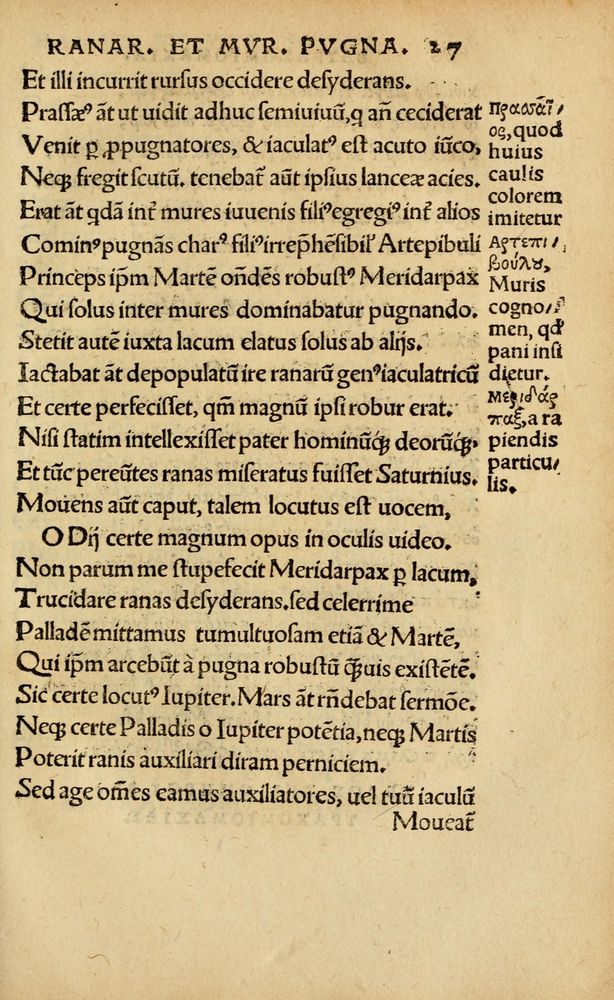 RANAR. ET MVR. PVGNA. 27
Et illi incurrit rursus occidere desyderans.
Prassæꝰ āt ut uidit adhuc semiuiuū, q an̄ ceciderat
Venit ꝑ ꝓpugnatores, & iaculatꝰ est acuto iūco,
Neqꝫ fregit scutū. tenebat᷑ aūt ipsius lanceæ acies.
Erat āt qdā int᷑ mures iuuenis filiꝰ egregiꝰ int᷑ alios
Cominꝰ pugnās charꝰ filiꝰ irrep̄hēsibil᷑ Artepibuli
Princeps ip̄m Martē on̄dēs robustꝰ Meridarpax
Qui solus inter mures dominabatur pugnando.
Stetit autē iuxta lacum elatus solus ab alijs.
Iactabat āt depopulatū ire ranarū genꝰ iaculatricū
Et certe perfecisset, qm̄ magnū ipsi robur erat.
Nisi statim intellexisset pater hominūqꝫ deorūqꝫ.
Et tūc pereūtes ranas miseratus fuisset Saturnius.
Mouens aūt caput, talem locutus est uocem,
O Dij certe magnum opus in oculis uideo.
Non parum me stupefecit Meridarpax ꝑ lacum,
Trucidare ranas desyderans. sed celerrime
Palladē mittamus tumultuosam etiā & Martē,
Qui ip̄m arcebūt à pugna robustū q̄uis existētē.
Sic certe locutꝰ Iupiter. Mars āt rn̄debat sermōe.
Neqꝫ certe Palladis o Iupiter potētia, neqꝫ Martis
Poterit ranis auxiliari diram perniciem.
Sed age om̄es eamus auxiliatores, uel tuū iaculū
Moueat᷑
πρασσαῖ/
ος, quod
huius
caulis
colorem
imitetur
Αρτεπι/
βούλου,
Muris
cogno/
men, qđ
pani insi
dietur.
μεριδάρ
παξ, a ra
piendis
particu
lis.